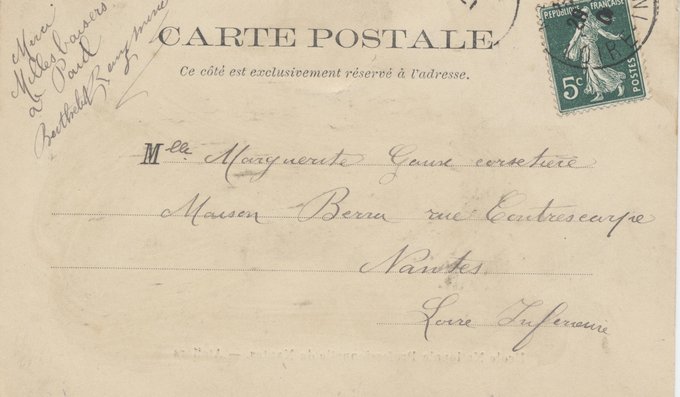 Merci
Milles baisers
à Paul
Berthelot Remy
CARTE POSTALE
Ce côté est exclusivement réservé à l'adresse.
RÉPUBLIQUE FRANÇAISE
5c
POSTES
Mlle Marguerite Gaux corsetière
Maison Berru rue Contrescarpe
Nantes
Loire Inférieure